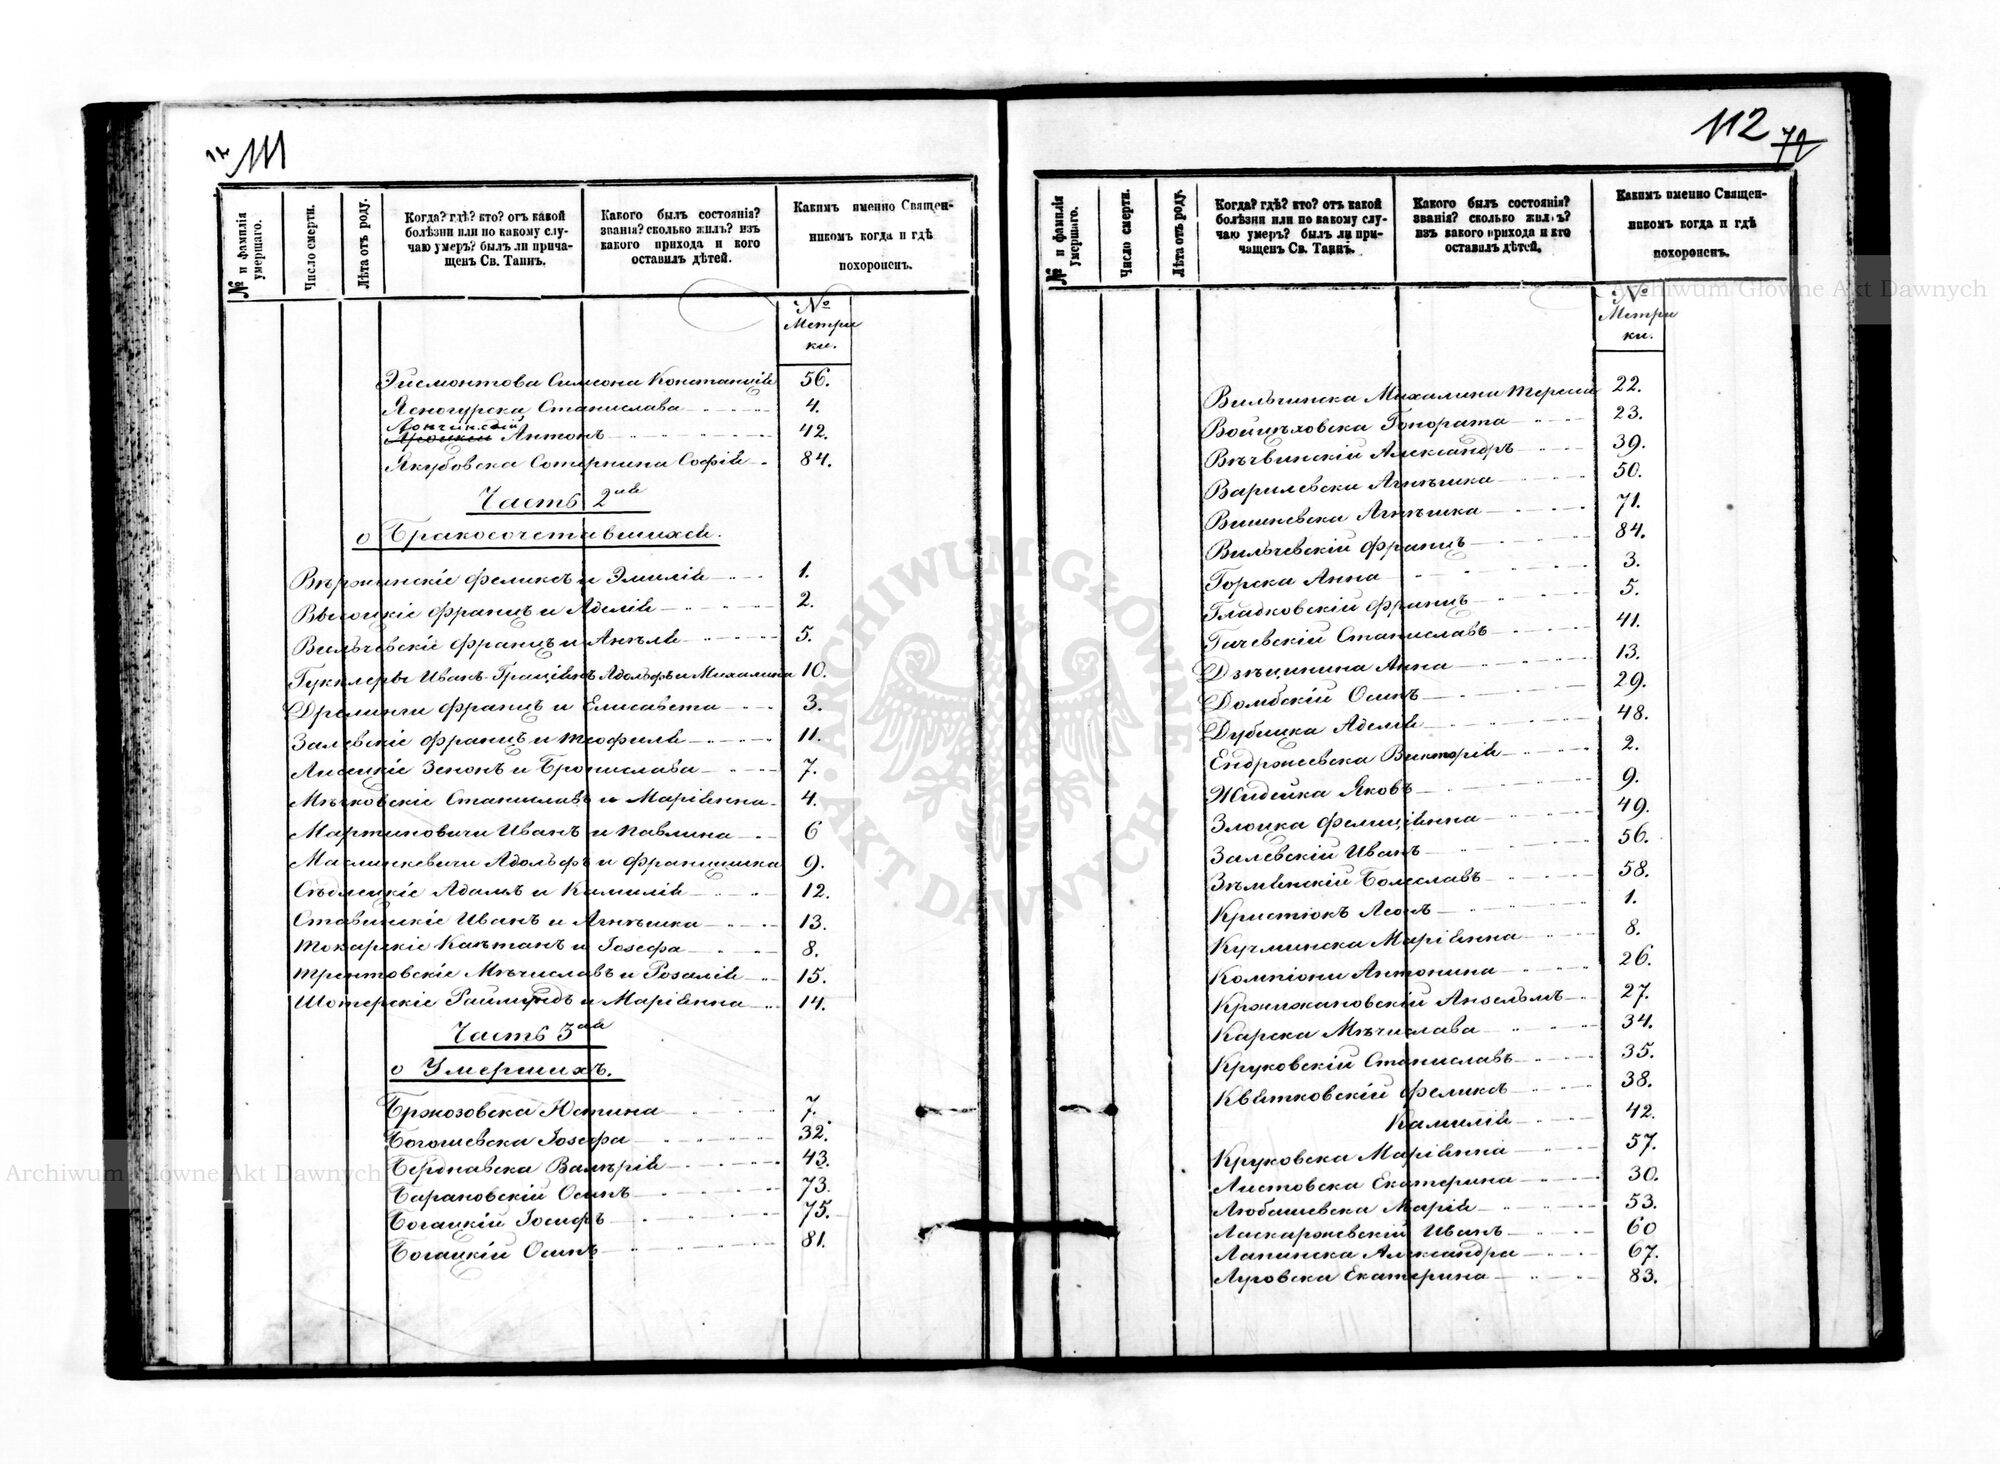 111
№ и фамилія умершаго.
Число смерти.
Лѣта отъ роду.
Когда? гдѣ? кто? отъ какой
болѣзни или по какому слу-
чаю умеръ? былъ ли прича-
щенъ Св. Таинъ.
Какого былъ состоянія?
званія? сколько жилъ? изъ
какого прихода и кого
оставилъ дѣтей.
Какимъ именно Священ-
никомъ когда и гдѣ
похороненъ.
№
Метри
ки.
Эйсмонтова Симеона Констанція 56.
Ясногурска Станислава 4.
Лончинскій
Антонъ 42.
Якубовска Софія 84.
Часть 2ая
о Бракосочетавшихся.
Вержинскіе Феликсъ и Эмилія 1.
Высоцкіе Францъ и Аделя 2.
Вильчевскіе Францъ и Анѣля 5.
Гуклеры Иванъ-Граціянъ Адольфъ и Михалина 10.
Дрелинги Францъ и Елисавета 3.
Залевскіе Францъ и Теофиля 11.
Лисецкіе Зенонъ и Бронислава 7.
Мѣчковскіе Станиславъ и Маріянна 4.
Мартиновичи Иванъ и Павлина 6
Маслинкевичи Адольфъ и Францишка 9.
Сѣдлецкіе Адамъ и Камилія 12.
Ставицкіе Иванъ и Агнѣшка 13.
Токарскіе Каѣтанъ и Іозефа 8.
Трентовскіе Мѣчиславъ и Розалія 15.
Шотерскіе Раймундъ и Маріянна 14.
Часть 3ая
о Умершихъ.
Бржозовска Юстина 7.
Богошевска Іозефа 32.
Валерія 43.
Барановскій Осипъ 73.
Богацкій Іосифъ 75.
Богацкій Осипъ 81.
112
72
№ и фамилія умершаго.
Число смерти.
Лѣта отъ роду.
Когда? гдѣ? кто? отъ какой
болѣзни или по какому слу-
чаю умеръ? былъ ли при-
чащенъ Св. Таинъ.
Какого былъ состоянія?
званія? сколько жилъ?
изъ какого прихода и кто
оставилъ дѣтей.
Какимъ именно Священ-
никомъ когда и гдѣ
похороненъ.
№
Метри
ки.
Вильчинска Михалина Тереса 22.
Войцѣховска Гонората 23.
Вѣчвинскій Александръ 39.
Варилевска Агнѣшка 50.
Вишневска Агнѣшка 71.
Вильчевскій Францъ 84.
Горска Анна 3.
Гладковскій Францъ 5.
Гачевскій Станиславъ 41.
Дзѣцинина Анна 13.
Домбскій Осипъ 29.
Дубицка Аделя 48.
Ендржеевска Викторія 2.
Жидейка Яковъ 9.
Злоцка Фелиціянна 49.
Залевскій Иванъ 56.
Зѣмянскій Болеславъ 58.
Кристіокъ Леонъ 1.
Кучминска Маріянна 8.
Компіони Антонина 26.
Кржижановскій Ансельмъ 27.
Карска Мѣчислава 34.
Круковскій Станиславъ 35.
Квятковскій Феликсъ 38.
Камилія 42.
Круковска Маріянна 57.
Листовска Екатерина 30.
Любашевска Марія 53.
Ласкаржевскій Иванъ 60
Лапинска Александра 67.
Луровска Екатерина 83.
Archiwum Główne Akt Dawnych
Archiwum Główne Akt Dawnych
ARCHIWUM GŁÓWNE AKT DAWNYCH